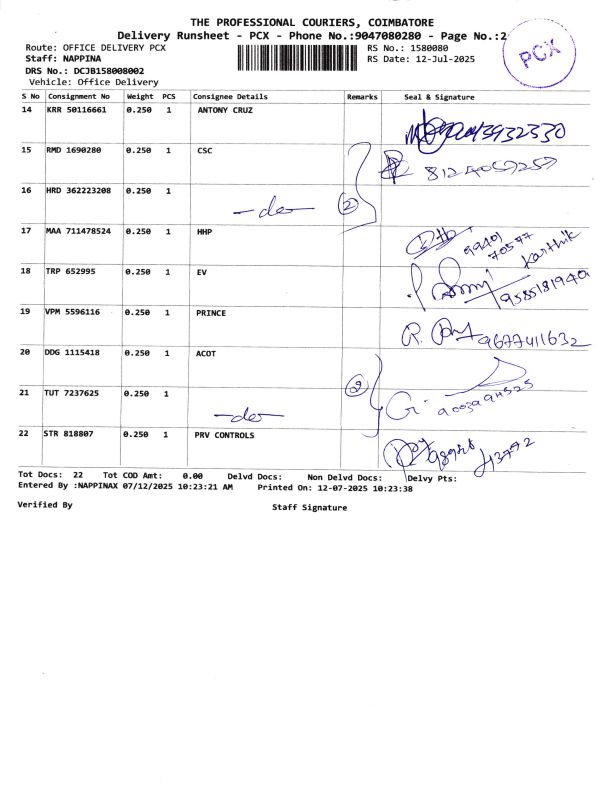 THE PROFESSIONAL COURIERS, COIMBATORE
Delivery Runsheet - PCX - Phone No.:9047080280 - Page No.:2
PCX
Route: OFFICE DELIVERY PCX RS No.: 1580080
Staff: NAPPINA RS Date: 12-Jul-2025
DRS No.: DCJB158008002
Vehicle: Office Delivery
S No Consignment No Weight PCS Consignee Details Remarks Seal & Signature
14 KRR 50116661 0.250 1 ANTONY CRUZ
15 RMD 1690280 0.250 1 CSC
16 HRD 362223208 0.250 1 -do- 2
17 MAA 711478524 0.250 1 HHP 99401 70577 Karthik
18 TRP 652995 0.250 1 EV 9585181940
19 VPM 5596116 0.250 1 PRINCE 9677411632
20 DDG 1115418 0.250 1 ACOT
21 TUT 7237625 0.250 1 -do- 2
22 STR 818807 0.250 1 PRV CONTROLS
Tot Docs: 22 Tot COD Amt: 0.00 Delvd Docs: Non Delvd Docs: Delvy Pts:
Entered By :NAPPINAX 07/12/2025 10:23:21 AM Printed On: 12-07-2025 10:23:38
Verified By Staff Signature